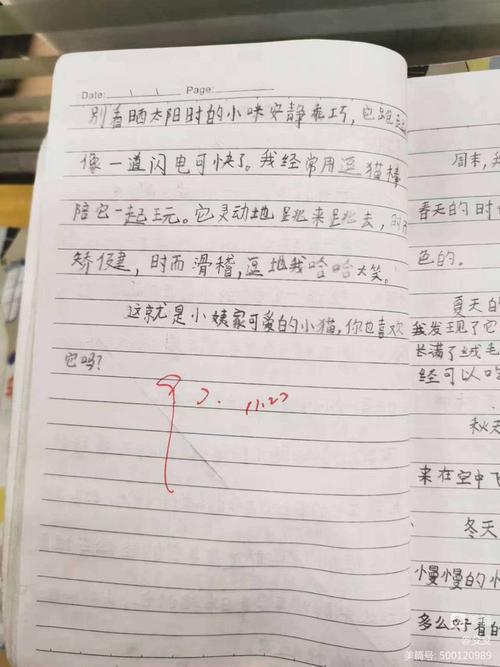 Date: \ \ Page:
别看晒太阳时的小咪安静乖巧，它跑起
像一道闪电可快了。我经常用逗猫棒
陪它一起玩。它灵动地跳来跳去，时而
矫健，时而滑稽，逗地我哈哈大笑。
这就是小姨家可爱的小猫，你也喜欢
它吗？
11.27
周末，我
春天的时
色的。
夏天的
我发现了它
长满了绒毛
经可以吃
秋天
来在空中飞
冬天
慢慢的
多么好看的
美篇号: 500120989